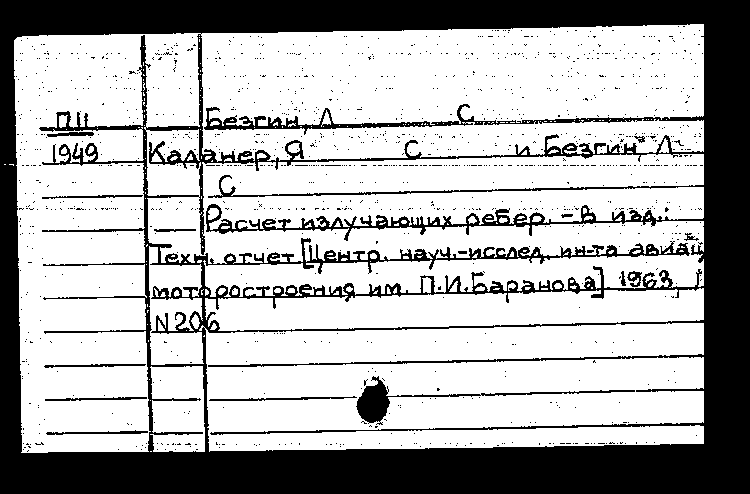 П II Безгин, Л С
1949 Каданер, Я С и Безгин, Л
С
Расчет излучающих ребер. – В изд.:
Техн. отчет [Центр. науч.-исслед. ин-та авиац
моторостроения им. П.И.Баранова]. 1963,
N 206